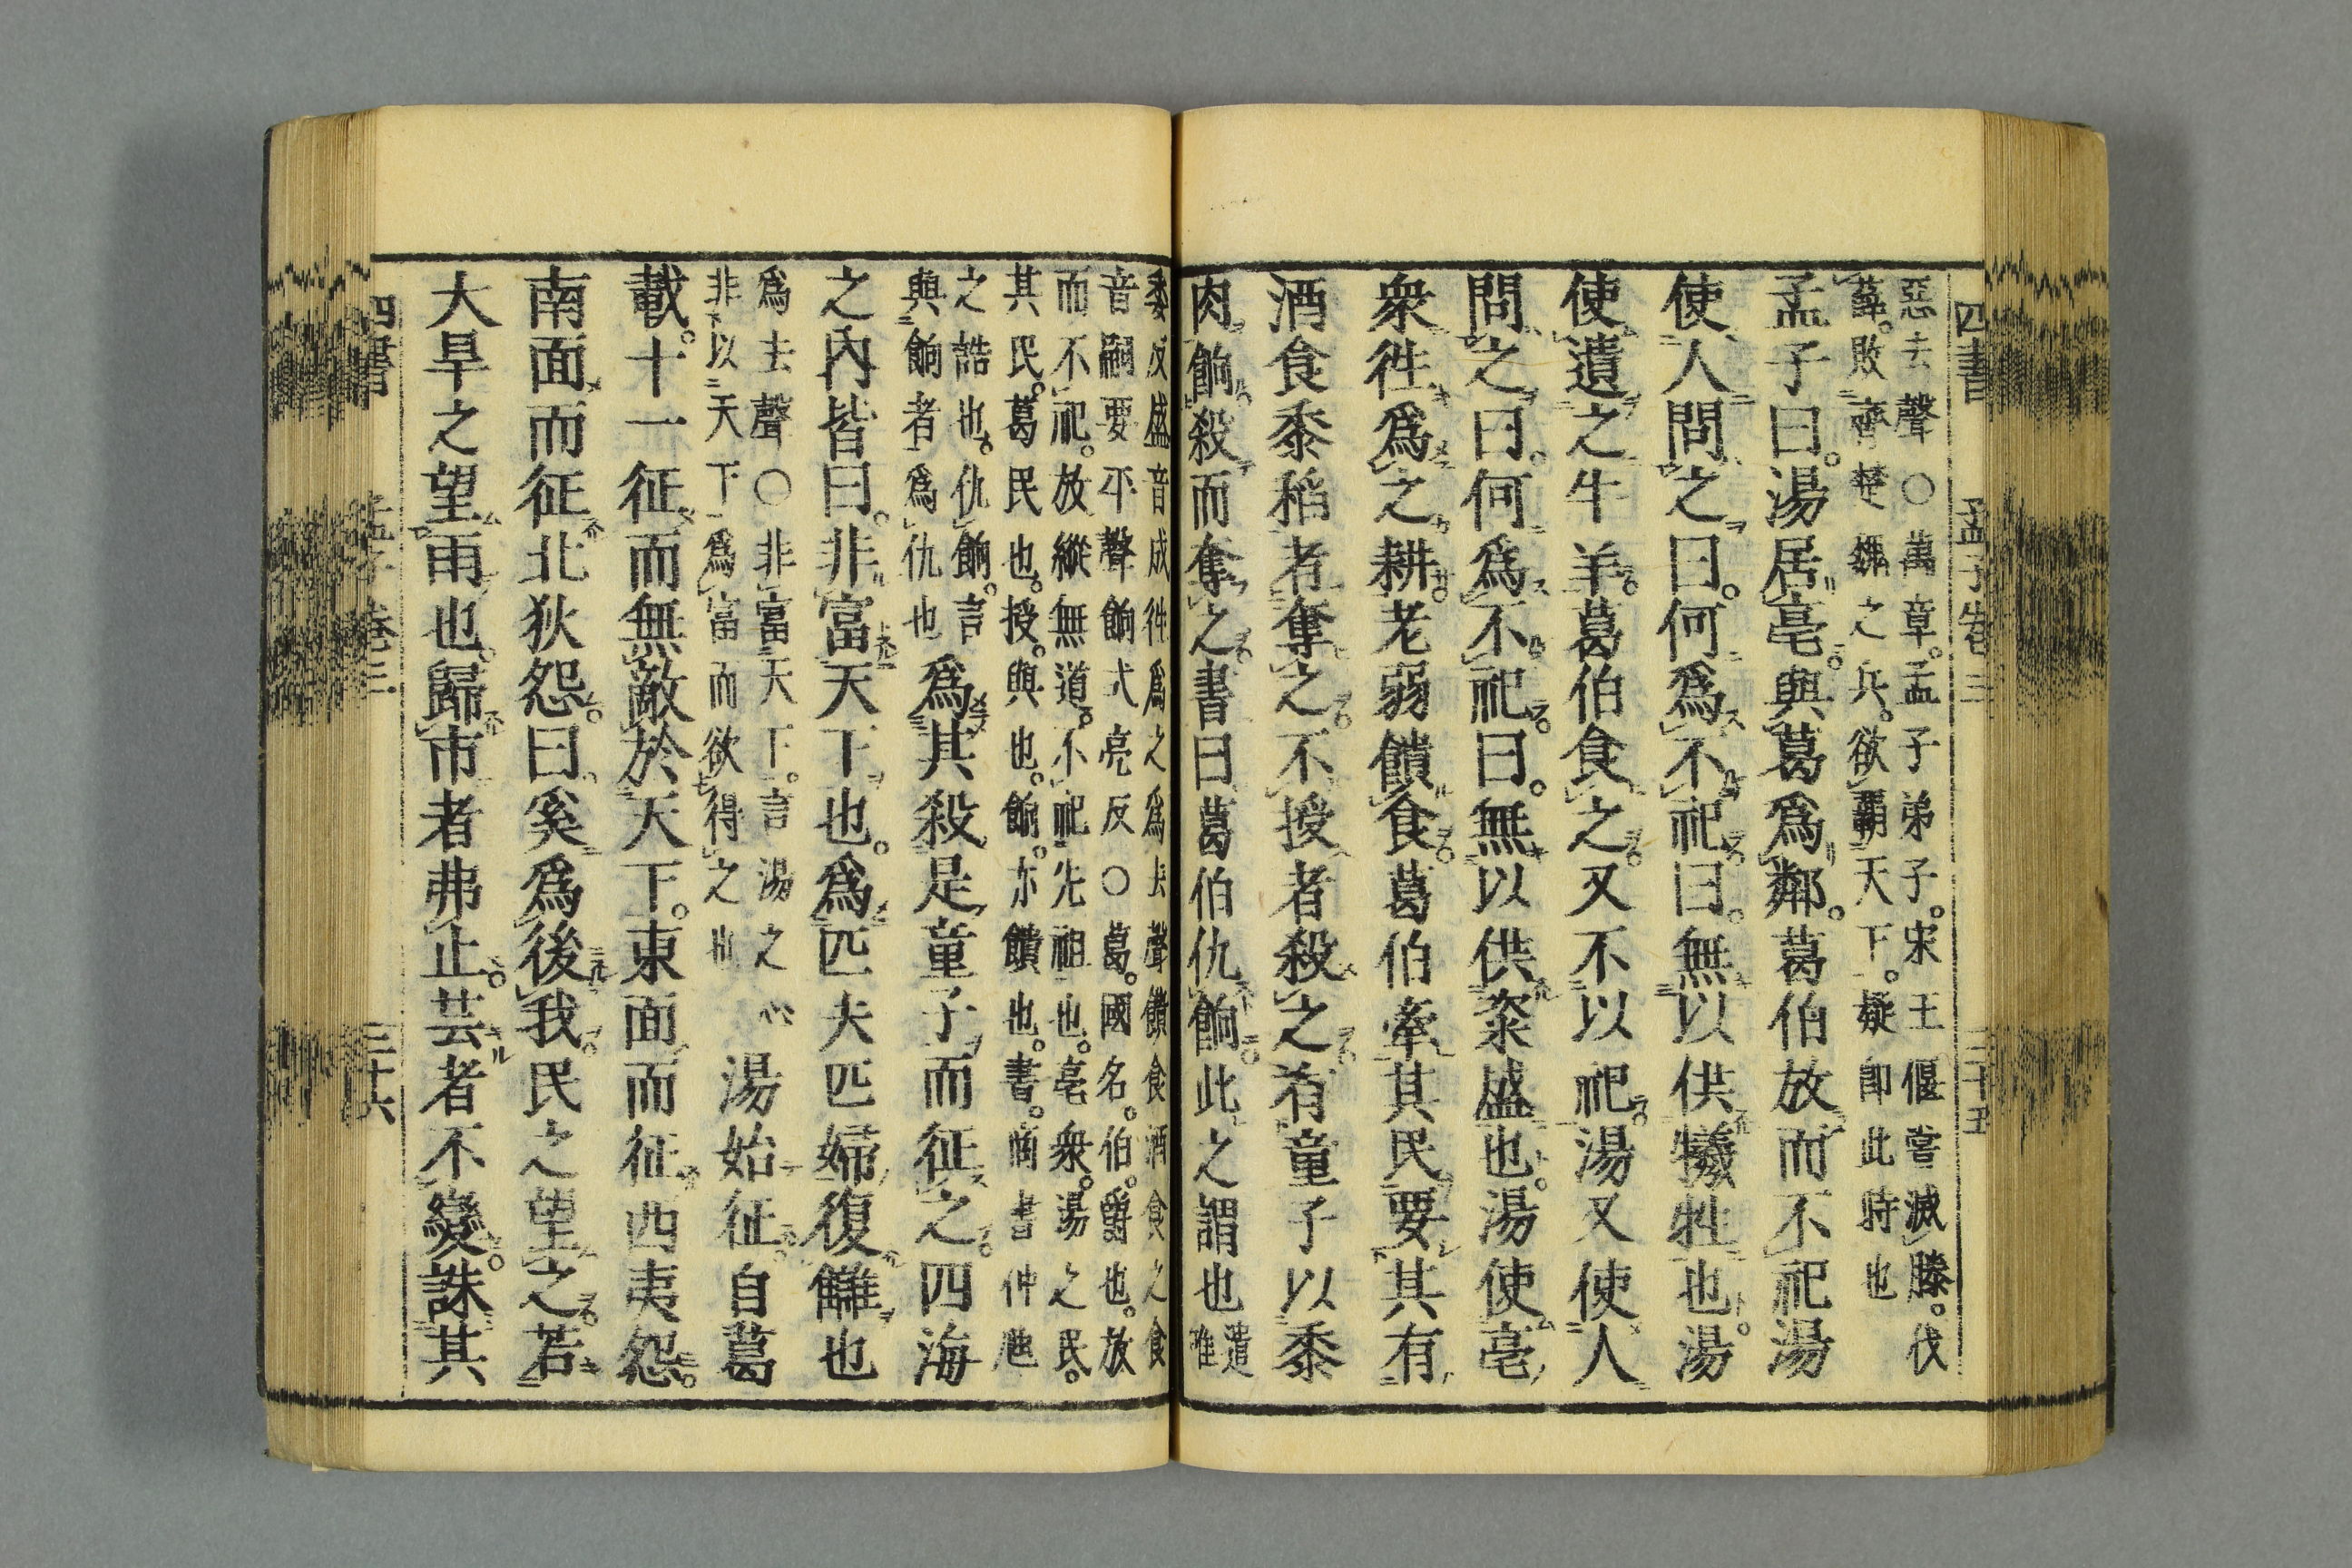 四書 孟子卷三 三十五
惡去聲〇萬章。孟子弟子。宋王偃嘗滅滕。伐
薛。敗齊楚魏之兵。欲霸天下。疑卽此時也
孟子曰。湯居亳。與葛爲鄰。葛伯放而不祀湯
使人問之曰。何爲不祀。曰。無以供犧牲也。湯
使遺之牛羊。葛伯食之。又不以祀。湯又使人
問之曰。何爲不祀。曰。無以供粢盛也。湯使亳
衆徃爲之耕。老弱饋食。葛伯牽其民要其有
酒食黍稻者奪之。不授者殺之。有童子以黍
肉餉。殺而奪之。書曰葛伯仇餉。此之謂也遺唯
季反盛音成徃爲之爲去聲饋食酒食之食
音嗣要平聲餉式亮反〇葛。國名。伯。爵也。放
而不祀。放縱無道。不祀先祖也。亳衆。湯之民。
其民。葛民也。授。與也。餉。亦饋也。書。商書仲虺
之誥也。仇餉。言
與餉者爲仇也
爲其殺是童子而征之。四海
之內皆曰。非富天下也。爲匹夫匹婦復讎也
爲去聲〇非富天下。言湯之心
非以天下爲富而欲得之也
湯始征。自葛
載。十一征而無敵於天下。東面而征西夷怨。
南面而征北狄怨。曰。奚爲後我。民之望之。若
大旱之望雨也。歸市者弗止。芸者不變。誅其
四書 孟子卷三 三十六